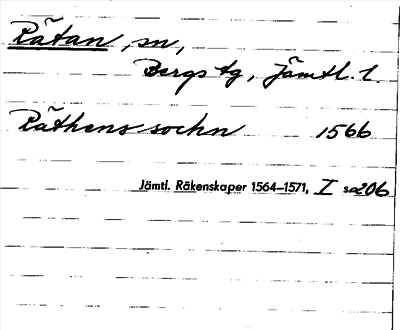 Rätan, sn,
Bergs tg, Jämtl. l.
Räthens sochn 1566
Jämtl. Räkenskaper 1564–1571, I s 206